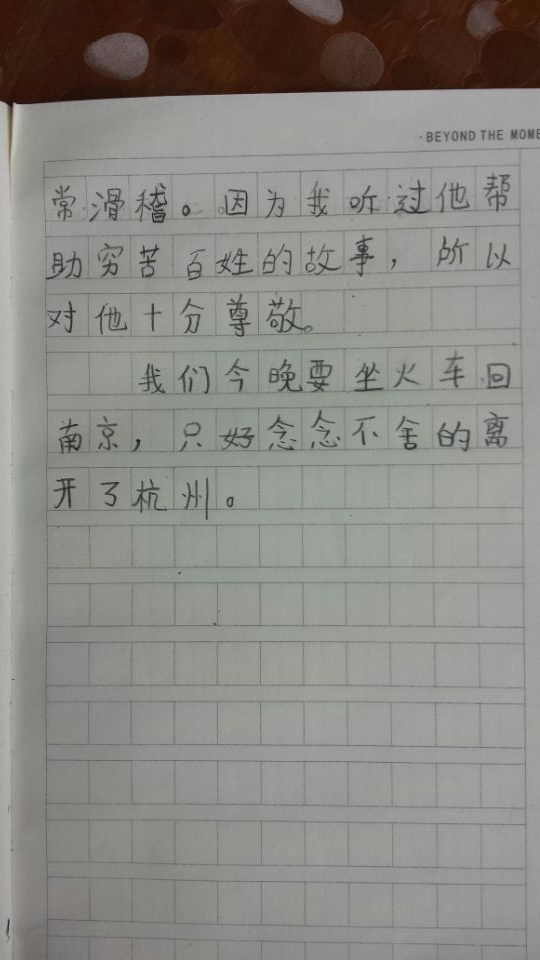 ·BEYOND THE MOME
常滑稽。因为我听过他帮
助穷苦百姓的故事，所以
对他十分尊敬。
我们今晚要坐火车回
南京，只好念念不舍的离
开了杭州。